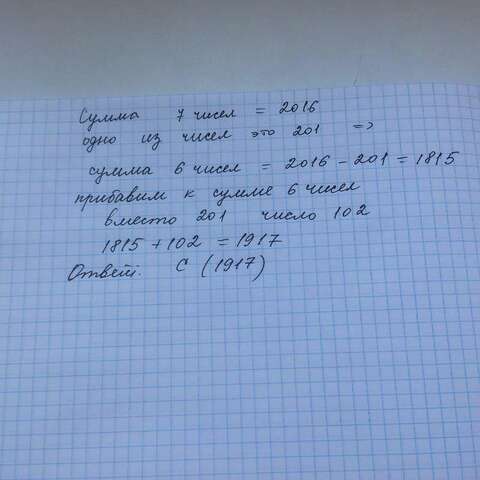 Сумма 7 чисел = 2016
одно из чисел это 201 =>
сумма 6 чисел = 2016 - 201 = 1815
прибавим к сумме 6 чисел
вместо 201 число 102
1815 + 102 = 1917
Ответ: С (1917)